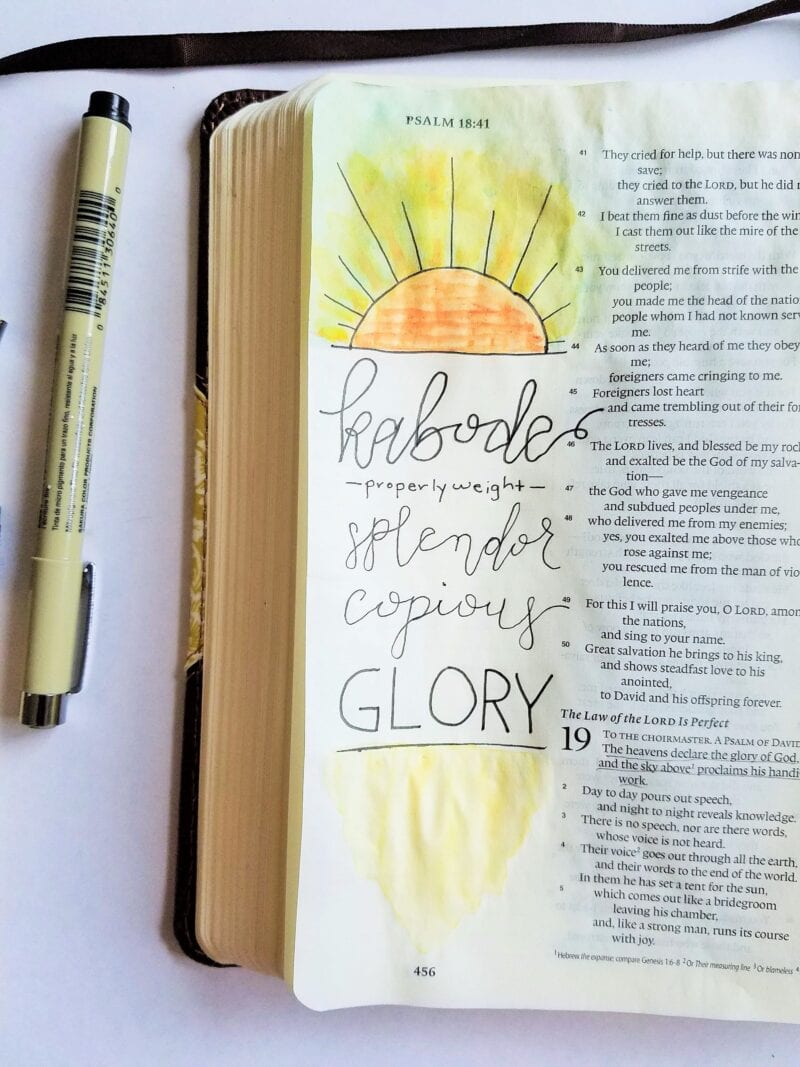 PSALM 18:41
kabode
—properly weight—
splendor
copious
GLORY
41 They cried for help, but there was
save;
they cried to the LORD, but he did
answer them.
42 I beat them fine as dust before the
I cast them out like the mire of the
streets.
43 You delivered me from strife with the
people;
you made me the head of the
people whom I had not known
me.
44 As soon as they heard of me they
me;
foreigners came cringing to me.
45 Foreigners lost heart
and came trembling out of their
tresses.
46 The LORD lives, and blessed be my
and exalted be the God of my salva-
tion—
47 the God who gave me vengeance
and subdued peoples under me,
48 who delivered me from my enemies;
yes, you exalted me above those
rose against me;
you rescued me from the man of
lence.
49 For this I will praise you, O LORD,
the nations,
and sing to your name.
50 Great salvation he brings to his king,
and shows steadfast love to his
anointed,
to David and his offspring forever.
The Law of the LORD Is Perfect
19 TO THE CHOIRMASTER. A PSALM OF DAVID
The heavens declare the glory of God,
and the sky above1 proclaims his handi
work.
2 Day to day pours out speech,
and night to night reveals knowledge.
3 There is no speech, nor are there words,
whose voice is not heard.
4 Their voice2 goes out through all the earth,
and their words to the end of the world.
In them he has set a tent for the sun,
5 which comes out like a bridegroom
leaving his chamber,
and, like a strong man, runs its course
with joy.
1 Hebrew the expanse; compare Genesis 1:6-8 2 Or Their measuring line 3 Or blameless 4
456
0 84511 30640 0
Tinta de micro pigmento para un trazo fino, resistente al agua y a la luz
SAKURA COLOR PRODUCTS CORPORATION